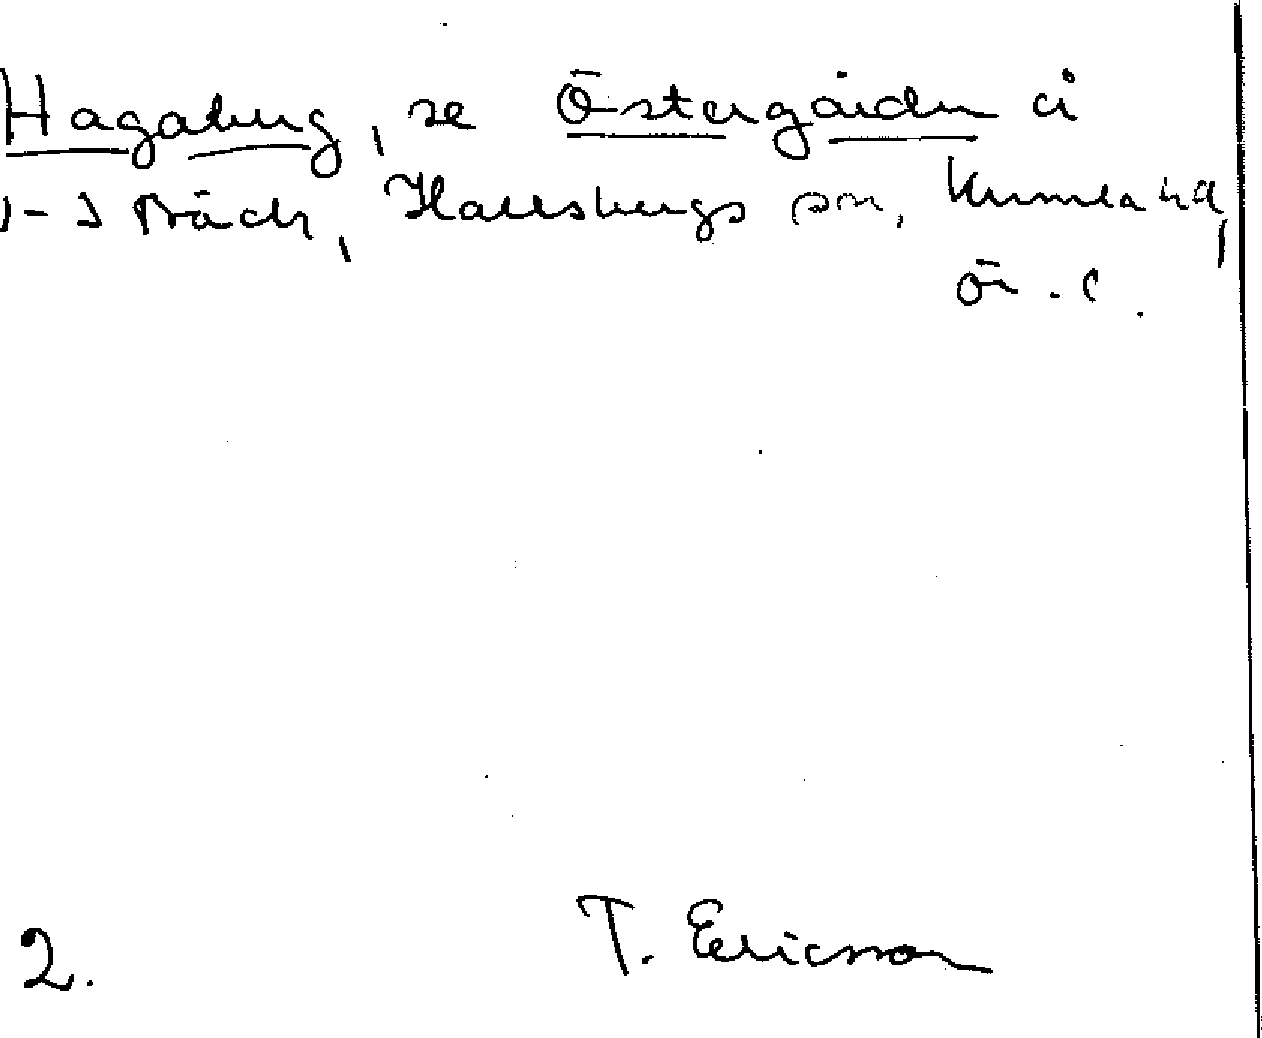 Hagaberg, se Östergården å
Hallsbergs sn, Kumla hd,
Ö.
2. T. Ericsson